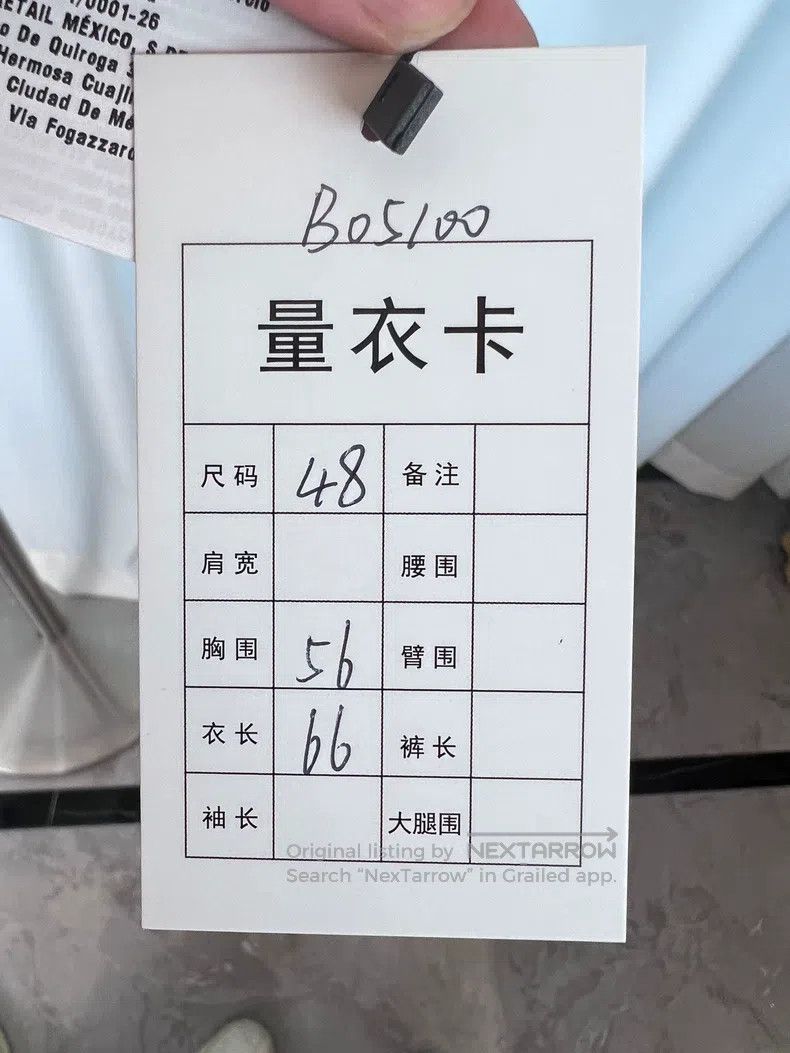 /0001-26
RETAIL MÉXICO, S
o De Quiroga
Hermosa Cuaji
Ciudad De Mé
Via Fogazzaro
B05100
量衣卡
尺码 48 备注
肩宽 腰围
胸围 56 臂围
衣长 66 裤长
袖长 大腿围
Original listing by NEXTARROW
Search “NexTarrow” in Grailed app.